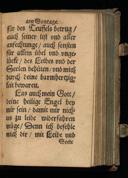 am Sontage.
für des Teuffels betrug /
auch seiner list vnd aller
anfechtunge / auch sonsten
für allem übel vnd vnge-
lück / des Leibes vnd der
Seelen behüten / vnd mich
durch deine barmhertzig-
keit bewaren.
Las auch mein Gott /
deine heilige Engel bey
mir sein / damit mir nich-
es zu leide widerfahren
müge / Denn ich befehle
mich dir / mit Leibe vnd
Seele